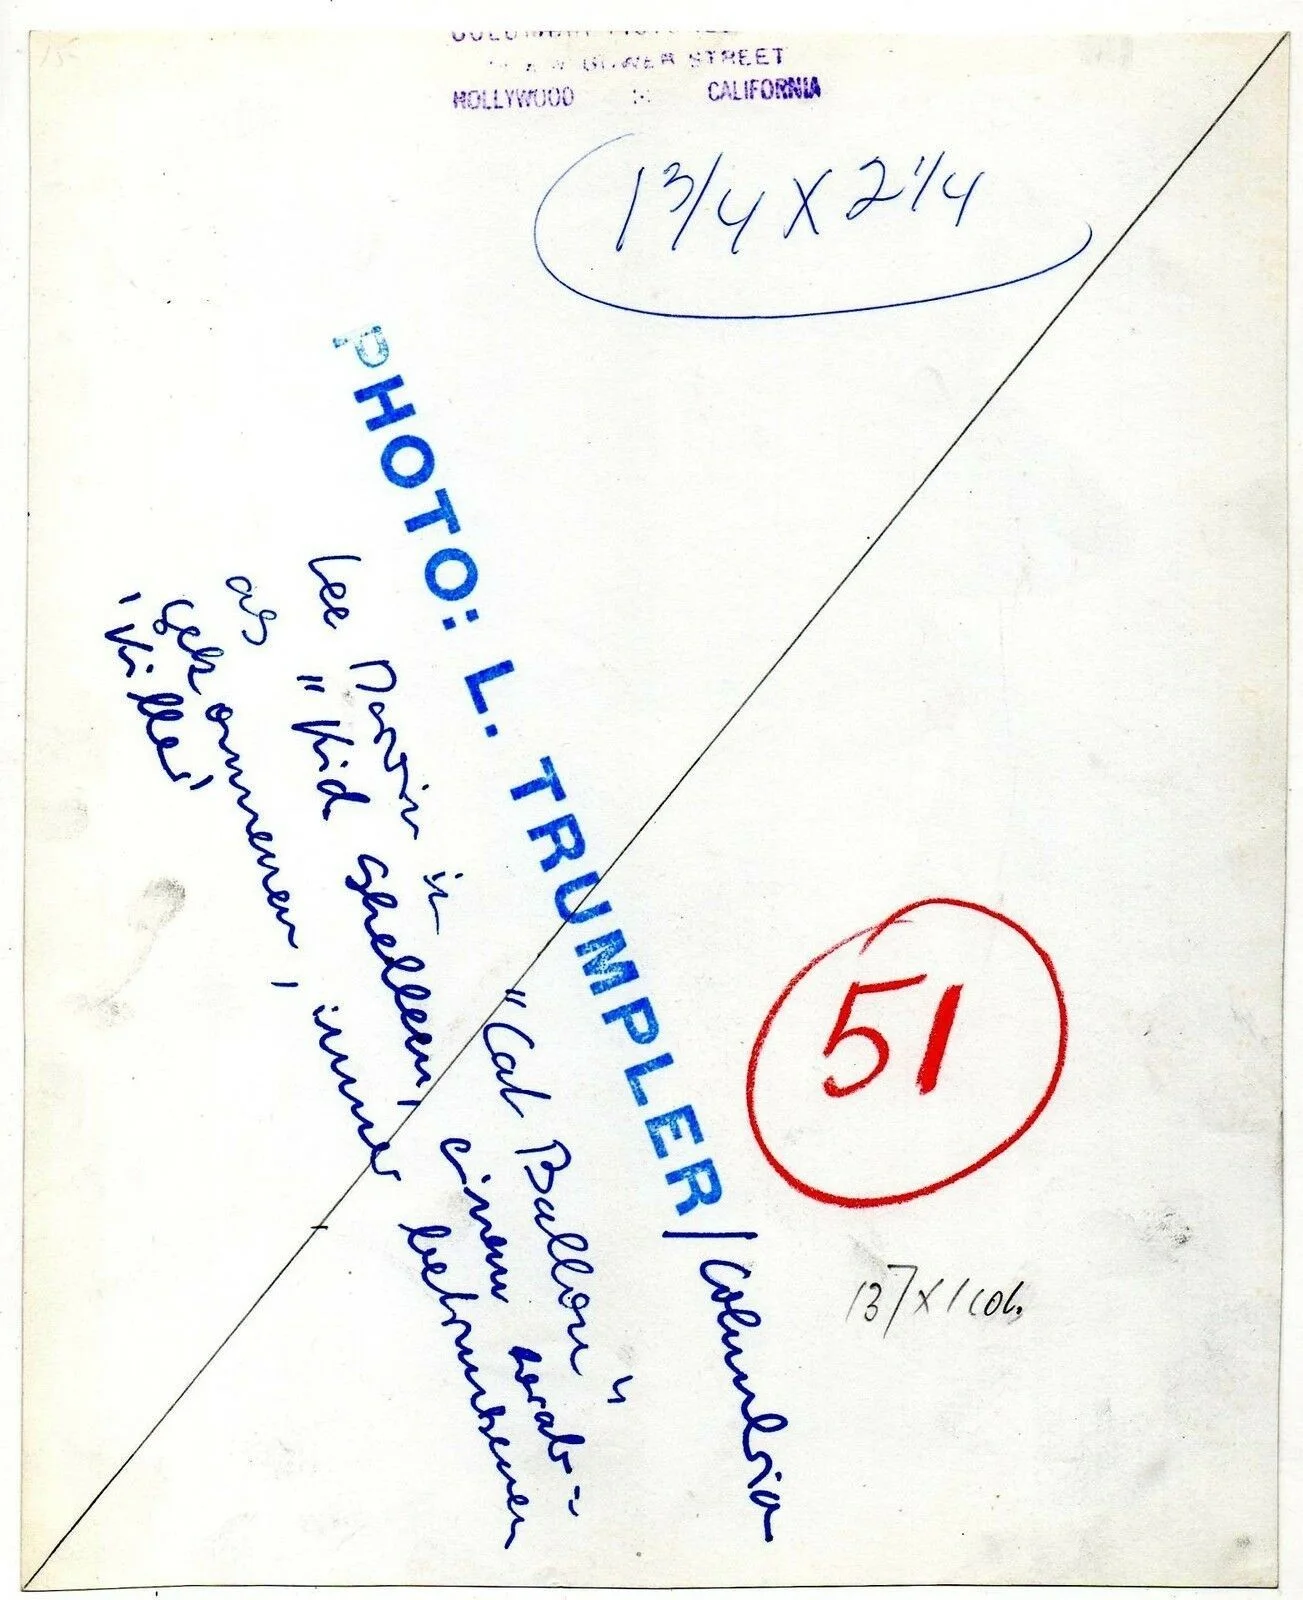 COLUMBIA PICTURES
GOWER STREET
HOLLYWOOD CALIFORNIA
1 3/4 X 2 1/4
PHOTO: L. TRUMPLER/Columbia
Lee Marvin in "Cat Ballou"
as "Kid Shelleen, einem herab=
gekommenen, immer betrunkenen
'Killer'
51
137 x 1 col.